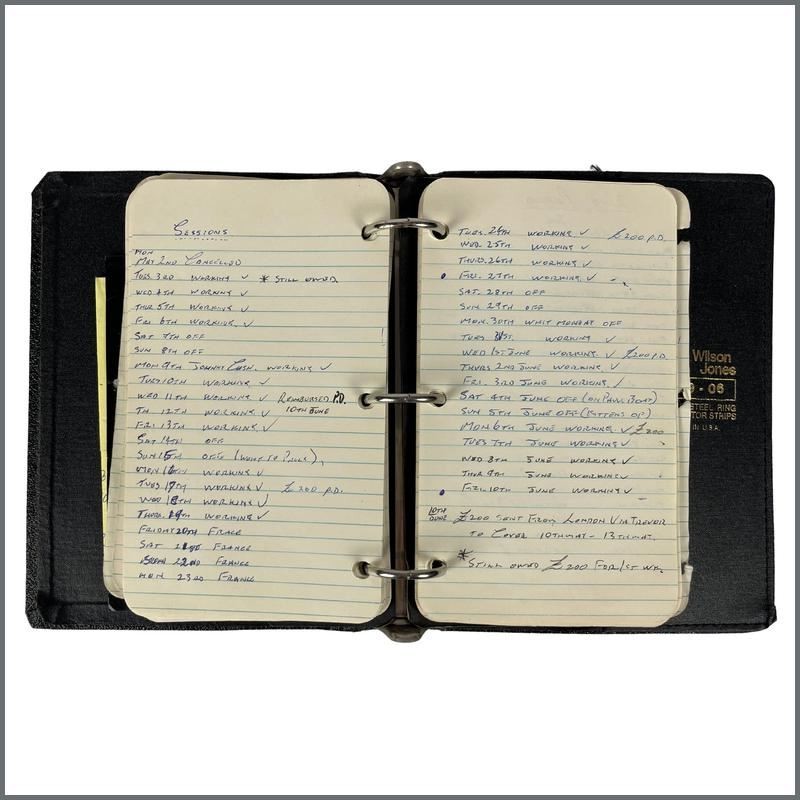 SESSIONS
MON
MAY 2ND CANCELLED
TUES 3RD WORKING ✓ * STILL OWED
WED 4TH WORKING ✓
THUR 5TH WORKING ✓
FRI 6TH WORKING ✓
SAT 7TH OFF
SUN 8TH OFF
MON 9TH JOHNNY CASH. WORKING ✓
TUES 10TH WORKING ✓
WED 11TH WORKING ✓ REIMBURSED P.D.
TH 12TH WORKING ✓ 10TH JUNE
FRI 13TH WORKING ✓
SAT 14TH OFF
SUN 15TH OFF (WENT TO PAULS)
MON 16TH WORKING ✓
TUES 17TH WORKING ✓ £200 P.D.
WED 18TH WORKING ✓
THURS. 19TH WORKING ✓
FRIDAY 20TH FRANCE
SAT 21ST FRANCE
22ND FRANCE
MON 23RD FRANCE
TUES. 24TH WORKING ✓ £200 P.D.
WED. 25TH WORKING ✓
THURS. 26TH WORKING ✓
FRI. 27TH WORKING ✓
SAT. 28TH OFF
SUN 29TH OFF
MON. 30TH WHIT MONDAY OFF
TUES 31ST. WORKING ✓
WED 1ST JUNE WORKING. ✓ £200 P.D.
THURS 2ND JUNE WORKING. ✓
FRI. 3RD JUNE WORKING. ✓
SAT 4TH JUNE OFF (ON PAUL BOAT)
SUN 5TH JUNE OFF (KITTENS OP)
MON 6TH JUNE WORKING ✓ £200
TUES 7TH JUNE WORKING ✓
WED 8TH JUNE WORKING ✓
THUR 9TH JUNE WORKING ✓
FRI. 10TH JUNE WORKING ✓
10TH JUNE £200 SENT FROM LONDON VIA TREVOR
TO COVER 10TH MAY - 13TH MAY.
* STILL OWED £200 FOR 1ST WK.
Wilson
Jones
- 06
STEEL RING
IN U.S.A.